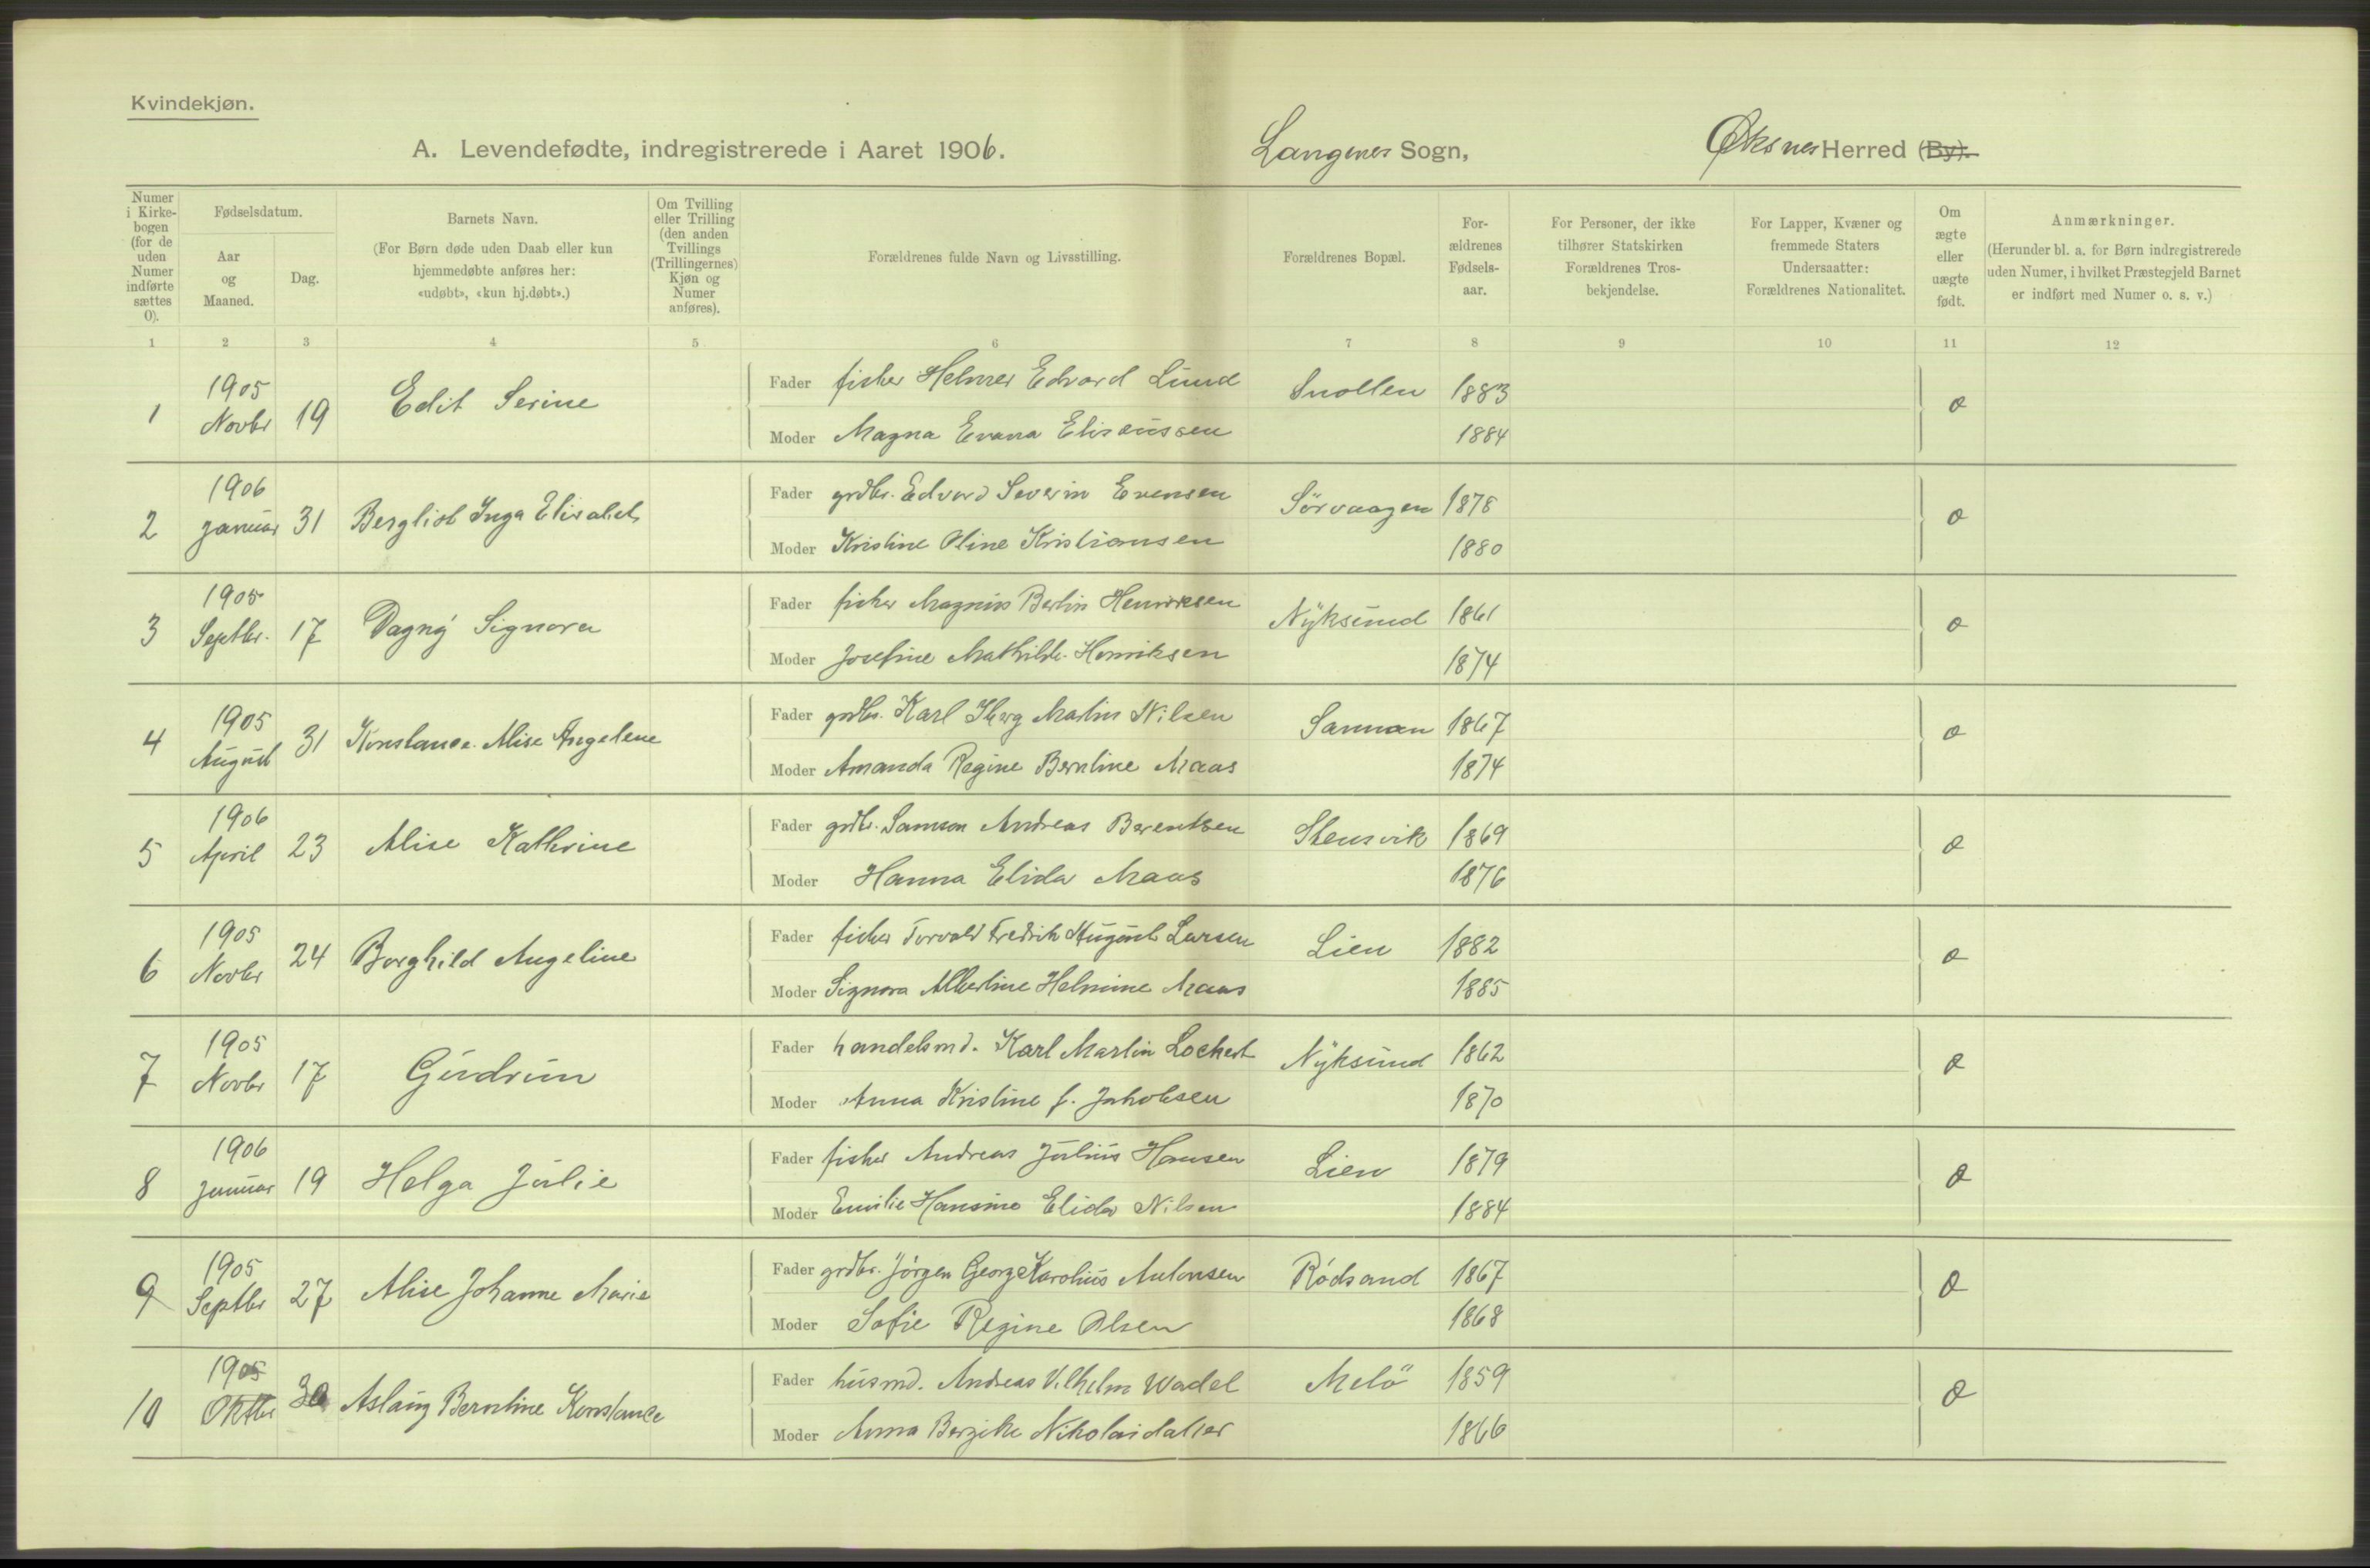 Kvindekjøn.
A. Levendefødte, indregistrerede i Aaret 1906.
Langenes Sogn,
Øksnes Herred (By).
Numer i Kirkebogen (for de uden Numer indførte sættes 0).
Fødselsdatum.
Aar og Maaned.
Dag.
Barnets Navn.
(For Børn døde uden Daab eller kun hjemmedøbte anføres her: «udøbt», «kun hj.døbt».)
Om Tvilling eller Trilling (den anden Tvillings (Trillingernes) Kjøn og Numer anføres).
Forældrenes fulde Navn og Livsstilling.
Forældrenes Bopæl.
Forældrenes Fødselsaar.
For Personer, der ikke tilhører Statskirken Forældrenes Trosbekjendelse.
For Lapper, Kvæner og fremmede Staters Undersaatter: Forældrenes Nationalitet.
Om ægte eller uægte født.
Anmærkninger.
(Herunder bl. a. for Børn indregistrerede uden Numer, i hvilket Præstegjeld Barnet er indført med Numer o. s. v.)
1 2 3 4 5 6 7 8 9 10 11 12
1 1905 Novbr 19 Edit Serine
Fader fisker Helmer Edvard Lund Smollen 1883
Moder Magna Evana Elisæussen 1884
2 1906 Januar 31 Bergliot Inga Elisabet
Fader grdbr. Edvard Severin Evensen Sørvaagen 1878
Moder Kristine Oline Kristiansen 1880
3 1905 Septbr. 17 Dagny Signora
Fader fisker Magnus Berlin Henriksen Nyksund 1861
Moder Josefine Mathilde Henriksen 1874
4 1905 August 31 Konstance Alise Angelene
Fader grdbr. Karl Martin Nilsen Sanman 1867
Moder Amanda Regine Berntine Maas 1874
5 1906 April 23 Alise Kathrine
Fader grdbr. Samson Andreas Berentsen Stensvik 1869
Moder Hanna Elida Maas 1876
6 1905 Novbr 24 Borghild Angeline
Fader fisker Torvald Fredrik August Larsen Lien 1882
Moder Signora Albertine Helmine Maas 1885
7 1905 Novbr 17 Gudrun
Fader handelsmd. Karl Martin Lockert Nyksund 1862
Moder Anna Kristine f. Jakobsen 1870
8 1906 Januar 19 Helga Julie
Fader fisker Andreas Julius Hansen Lien 1879
Moder Emilie Hansine Elida Nilsen 1884
9 1905 Septbr 27 Alise Johanne Marie
Fader grdbr. Jørgen George Karolius Antonsen Rødsand 1867
Moder Sofie Regine Olsen 1868
10 1905 Oktbr 30 Aslaug Berntine Konstance
Fader husmd. Andreas Vilhelm Wadel Melø 1859
Moder Anna Bergithe Nikolaidatter 1866